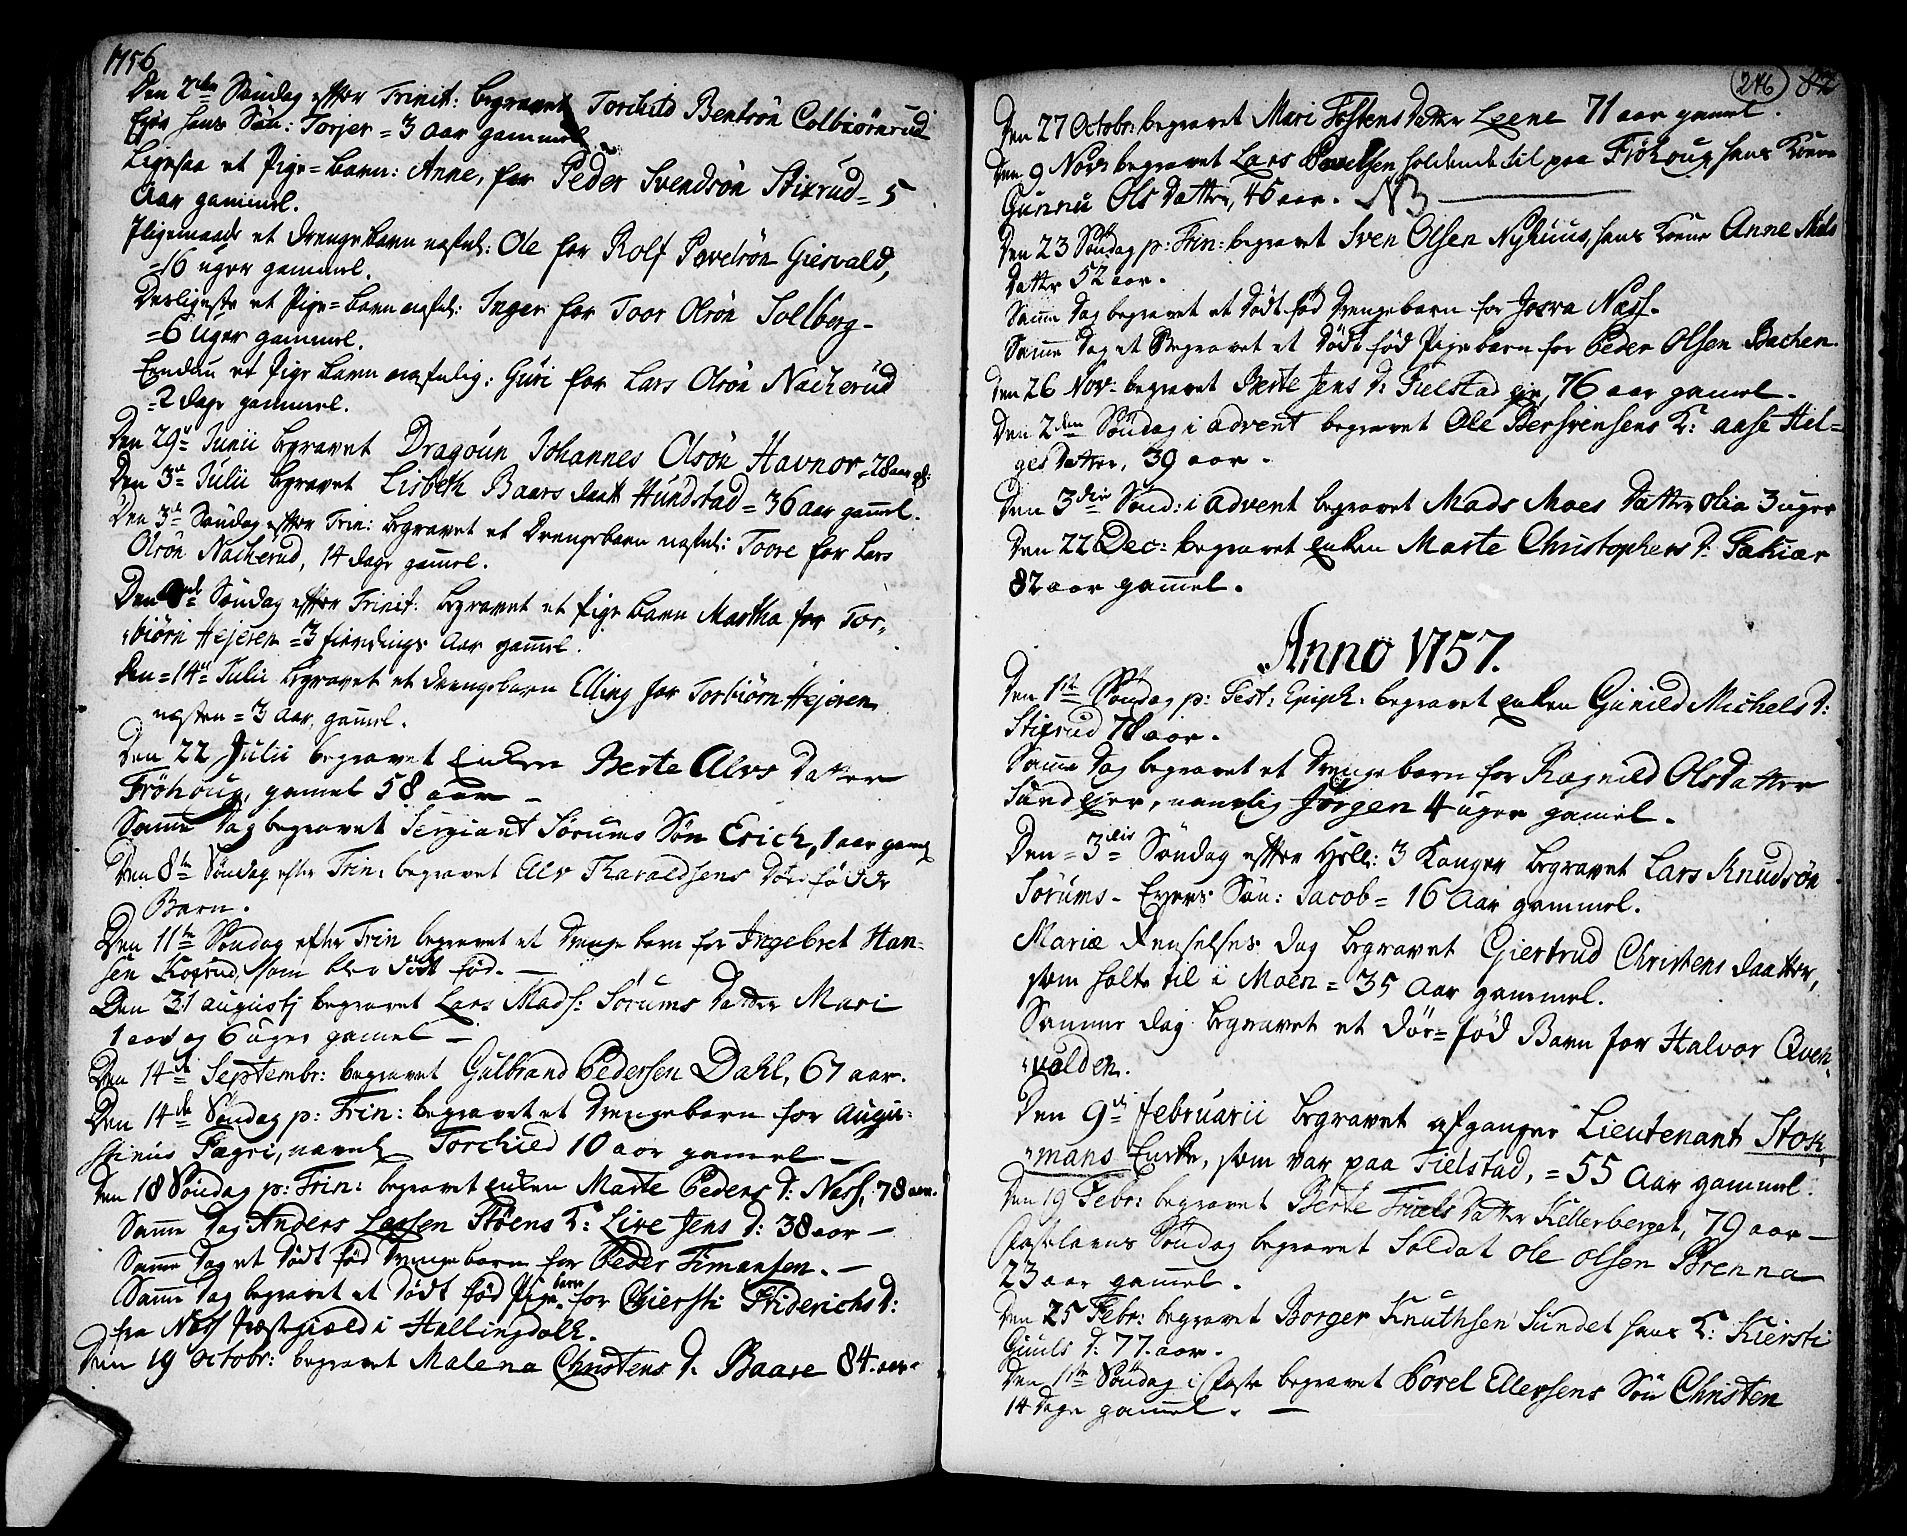 1756
Den 2den Søndag effter Trinit: begravet Torchild Bentsøn Colbiørnrud
Ejer hans Søn: Torjer = 3 Aar gammel.
Ligesaa et Pige=barn: Anne, for Peder Svendsøn Stixrud = 5
Aar gammel.
Iligemaade et drengebarn nafnl: Ole for Rolf Povelsøn Giesvald,
=16 uger gammel.
Desligeste et Pige=barn nafnl: Inger for Toor Olsøn Sollberg =
=6 Uger gammel.
Endnu et Pige barn nafnlig: Guri for Lars Olsøn Nackerud
=2 dage gammel.
Den 29de Junii begravet Dragoun Johannes Olsøn Havnor = 28 aar gl:
Den 3de Julii begravet Lisbeth Baars daatt Hundstad = 36 aar gamel.
Den 3de Søndag effter Trin: begravet et Drengebarn nafnl: Toore for Lars
Olsøn Nackerud, 14 dage gamel.
Den Søndag effter Trinit: begravet et pige barn Martha for Tor=
=biørn Hejeren = 3 fierdings Aar gamel.
Den = 14de Julii begravet et drengebarn Elling for Torbiørn Hejeren
næsten = 3 Aar gamel.
Den 22 Julii begravet Enken Berte Alvs Datter
Frøhoug, gamel 58 aar –
Samme Dag begravet Sergiant Sørums Søn Erich, 1 aar gaml
Den 8de Søndag efter Trin: begravet Alv Tharaldsens Død fødde
Barn.
Den 11te Søndag efter Trin begravet et Drenge barn for Ingebret Han=
sen Koxrud, som blev død fød. –
Den 31 augustj begravet Lars Mads: Sørums Datter Mari
1 aar og 6 uger gamel –
Den 14de Septembr: begravet Gulbrand Pedersen Dahl, 67 aar.
Den 14de Søndag p: Trin: begravet et Drengebarn for Augu=
stinus Fægri, navnl Torchild 10 aar gamel –
Den 18 Søndag p: Trin: begravet enken Marte Peders D: Næss, 78 aar.
Samme Dag Anders Larsen Støens K: Live Jens D: 38 aar –
Samme Dag et Dødt fød Drengebarn for Peder Timansen. –
Samme Dag begravet et dødt fød Pige barn for Chiersti Friderichs D:
fra Næss Præstegiæld i Hallingdalle.
Den 19 Octobr: begravet Malena Christens D. Baare 84. aar.
246 82
Den 27 Octobr: begravet Mari Tostens datter Leene 71 aar gamel.
Den 9 Nov: begravet Lars Povelsen holdende til paa Frøhoug hans Kone
Gunnu Ols datter, 45 aar. NB
Den 23 Søndag p: Trin: begravet Sven Olsen Nyhuus, hans Kone Anne Niels
datter 52 aar.
Samme dag begravet et dødt fød drengebarn for Josva Næss.
Samme Dag et Begravet et Dødt fød Pige barn for Peder Olsen Bachen.
Den 26 Nov: begravet Berte Jens D: Fielstad eje, 76 aar gamel.
Den 2den Søndag i advent begravet Ole Bersvensens K: Aase Hel=
ges Datter, 39 aar.
Den 3die Sønd: i advent begravet Mads Moes Datter Olia 3 uger
Den 22 Dec: begravet enken Marte Christophers D: Fakiær
82 aar gamel.
Anno 1757.
Den 1ste Søndag p: Fest: Epiph: begravet enken Gunild Michels D:
Stixrud 78 aar.
Samme Dag begravet et Drenge barn for Ragnild Ols Datter
Sundejer, namlig Jørgen 4 uger gamel.
Den = 3die Søndag effter Hell: 3 Konger begravet Lars Knudsøn
Sørums = Ejers Søn: Jacob = 16 Aar gammel.
Mariæ Renselses dag begravet Giertrud Christens daatter,
som holte til i Moen = 35 Aar gammel.
Samme dag begravet et dør=fød Barn for Halvor Qvern=
=volden.
Den 9de februarii begravet afganger Lieutenant Stok=
=mans Encke, som var paa Fielstad, = 55 Aar gammel.
Den 19 Febr: begravet Berte Truels Datter Kellerberget, 79 aar –
Fastelavns Søndag begravet Soldat Ole Olsen Brenna
23 aar gamel.
Den 25 Febr: begravet Borger Knuthsen Sundet hans K: Kiersti
Guuls D: 77. aar.
Den 1ste Søndag i Faste begravet Porel Ellevsens Søn Christen
14 Dage gamel. –